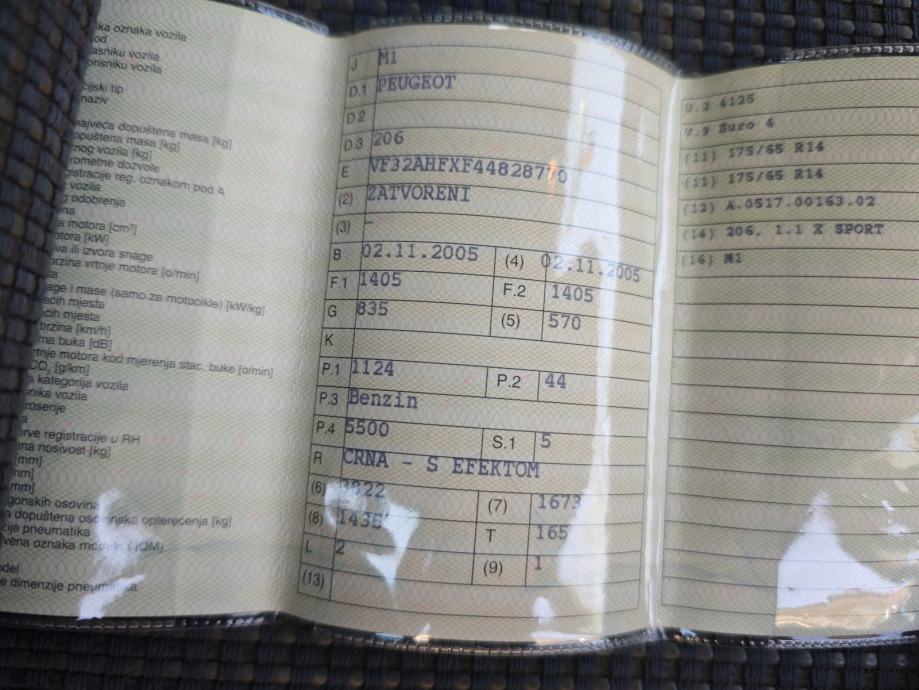 ka oznaka vozila
od
asniku vozila
orisniku vozila
cijski tip
naziv
najveća dopuštena masa [kg]
opuštena masa [kg]
nog vozila [kg]
rometne dozvole
gistracije reg. oznakom pod A
vozila
g odobrenja
na
a motora [cm³]
otora [kW]
va ili izvora snage
brzina vrtnje motora [o/min]
age i mase (samo za motocikle) [kW/kg]
ećih mjesta
ćih mjesta
brzina [km/h]
ma buka [dB]
rtnje motora kod mjerenja stac. buke [o/min]
CO₂ [g/km]
a kategorija vozila
snika vozila
roserije
a
prve registracije u RH
ena nosivost [kg]
[mm]
mm]
mm]
gonskih osovina
a dopuštena osovinska opterećenja [kg]
zije pneumatika
vena oznaka
odel
e dimenzije pneumatika
J M1
D.1 PEUGEOT
D.2
D.3 206
E VF32AHFXF44828770
(2) ZATVORENI
(3) -
B 02.11.2005 (4) 02.11.2005
F.1 1405 F.2 1405
G 835 (5) 570
K
P.1 1124 P.2 44
P.3 Benzin
P.4 5500 S.1 5
R CRNA - S EFEKTOM
(6) 3822 (7) 1673
(8) 1435 T 165
L 2 (9) 1
(13)
U.2 4125
V.9 Euro 4
(11) 175/65 R14
(11) 175/65 R14
(12) A.0517.00163.02
(14) 206, 1.1 X SPORT
(16) M1